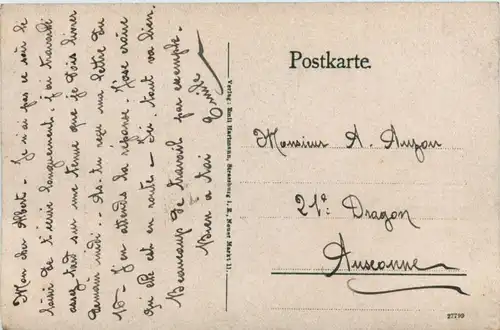 Mon cher Albert - Je n'ai pas ce soir le
loisir de t'écrire longuement. J'ai travaillé
assez tard sur une tenue que je dois livrer
demain midi. - As-tu reçu ma lettre du
15 - J'en attends la réponse. J'ose croire
qu'elle est en route - Ici tout va bien.
Beaucoup de travail par exemple.
Bien à toi
Emile
Verlag: Emil Hartmann, Strassburg i. E., Neuer Markt 11.
Postkarte.
Monsieur A. Auzon
21e Dragon
Auxonne
27799